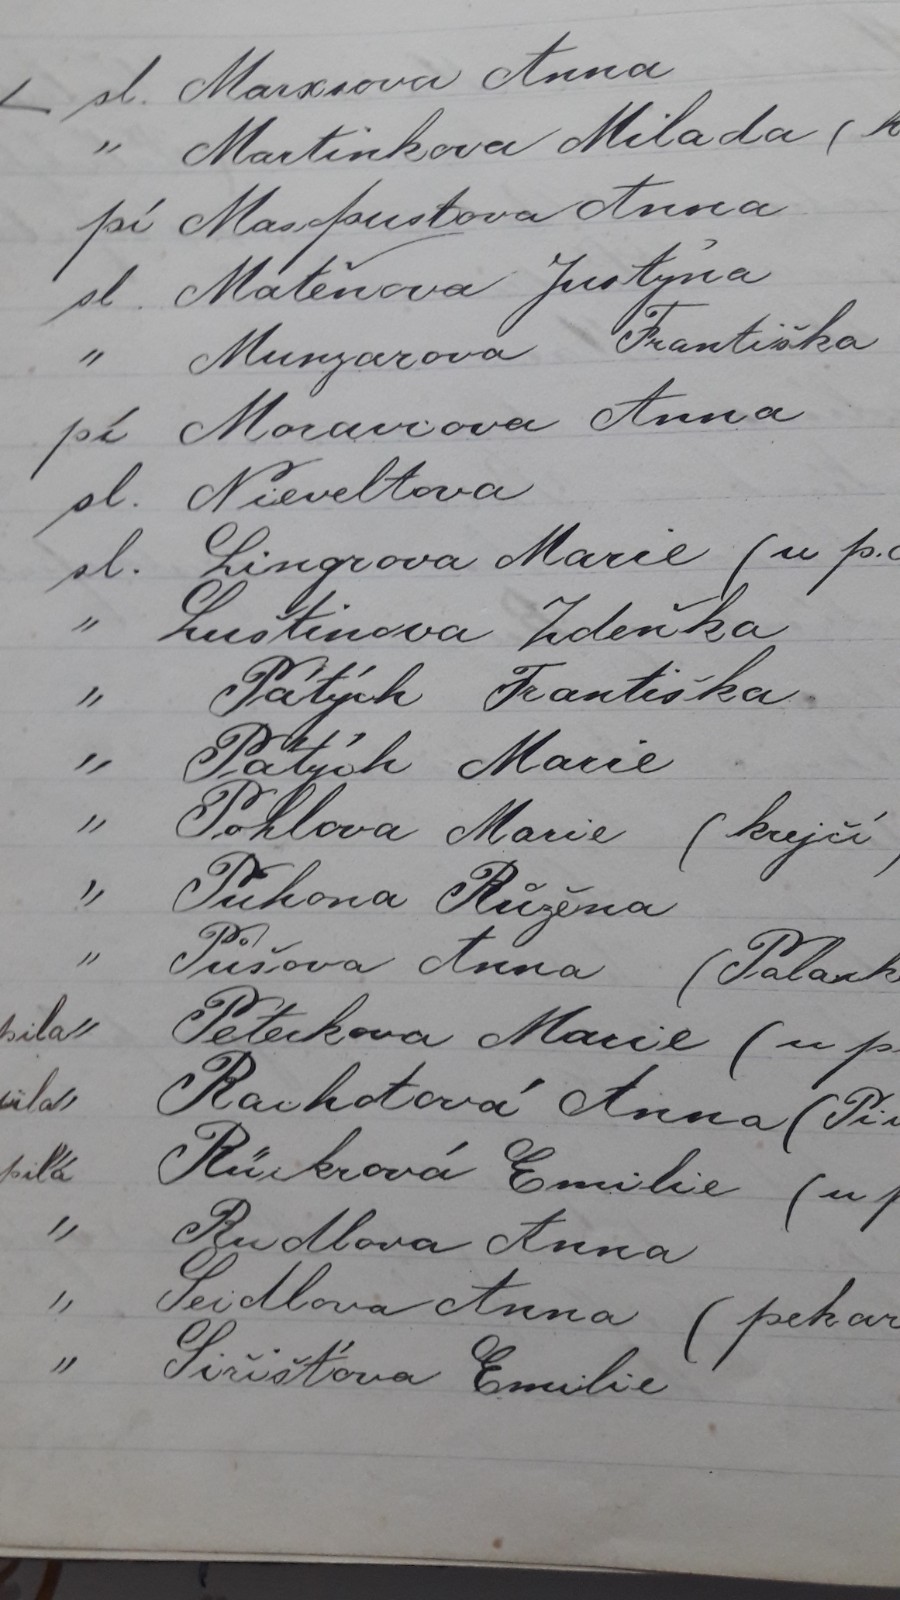 sl. Marxsova Anna
" Martinkova Milada (
pí Masopustova Anna
sl. Matěnova Justýna
" Munzarova Františka
pí Moravcova Anna
sl. Nieveltova
sl. Lingrova Marie (u p.
" Luštinova Zdeňka
" Pátých Františka
" Pátých Marie
" Pohlova Marie (krejčí)
" Puhona Růžena
" Půšova Anna (Palack
" Peterkova Marie (u p
" Rachotová Anna (
Rückrová Emilie (u p
" Rudlova Anna
" Seidlova Anna (pekar
" Siřišťova Emilie